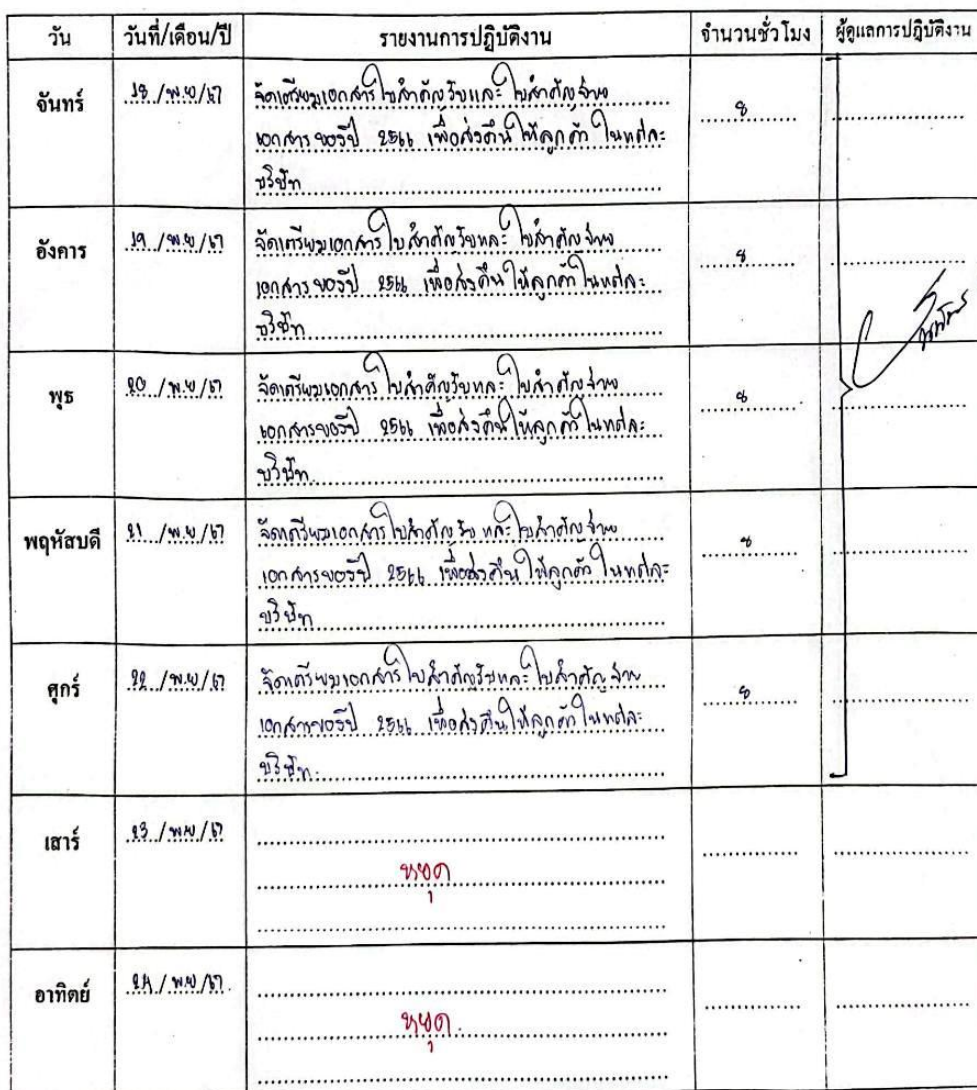 วัน วันที่/เดือน/ปี รายงานการปฏิบัติงาน จำนวนชั่วโมง ผู้ดูแลการปฏิบัติงาน
จันทร์ 18 / พ.ย / 67 จัดเตรียมเอกสารใบสำคัญรับและใบสำคัญจ่าย
เอกสารของปี 2566 เพื่อส่งคืนให้ลูกค้าในแต่ละ 8
บริษัท
อังคาร 19 / พ.ย / 67 จัดเตรียมเอกสารใบสำคัญรับและใบสำคัญจ่าย
เอกสารของปี 2566 เพื่อส่งคืนให้ลูกค้าในแต่ละ 8
บริษัท
พุธ 20 / พ.ย / 67 จัดเตรียมเอกสารใบสำคัญรับและใบสำคัญจ่าย
เอกสารของปี 2566 เพื่อส่งคืนให้ลูกค้าในแต่ละ 8
บริษัท
พฤหัสบดี 21 / พ.ย / 67 จัดเตรียมเอกสารใบสำคัญรับและใบสำคัญจ่าย
เอกสารของปี 2566 เพื่อส่งคืนให้ลูกค้าในแต่ละ 8
บริษัท
ศุกร์ 22 / พ.ย / 67 จัดเตรียมเอกสารใบสำคัญรับและใบสำคัญจ่าย
เอกสารของปี 2566 เพื่อส่งคืนให้ลูกค้าในแต่ละ 8
บริษัท
เสาร์ 23 / พ.ย / 67
หยุด
อาทิตย์ 24 / พ.ย / 67
หยุด